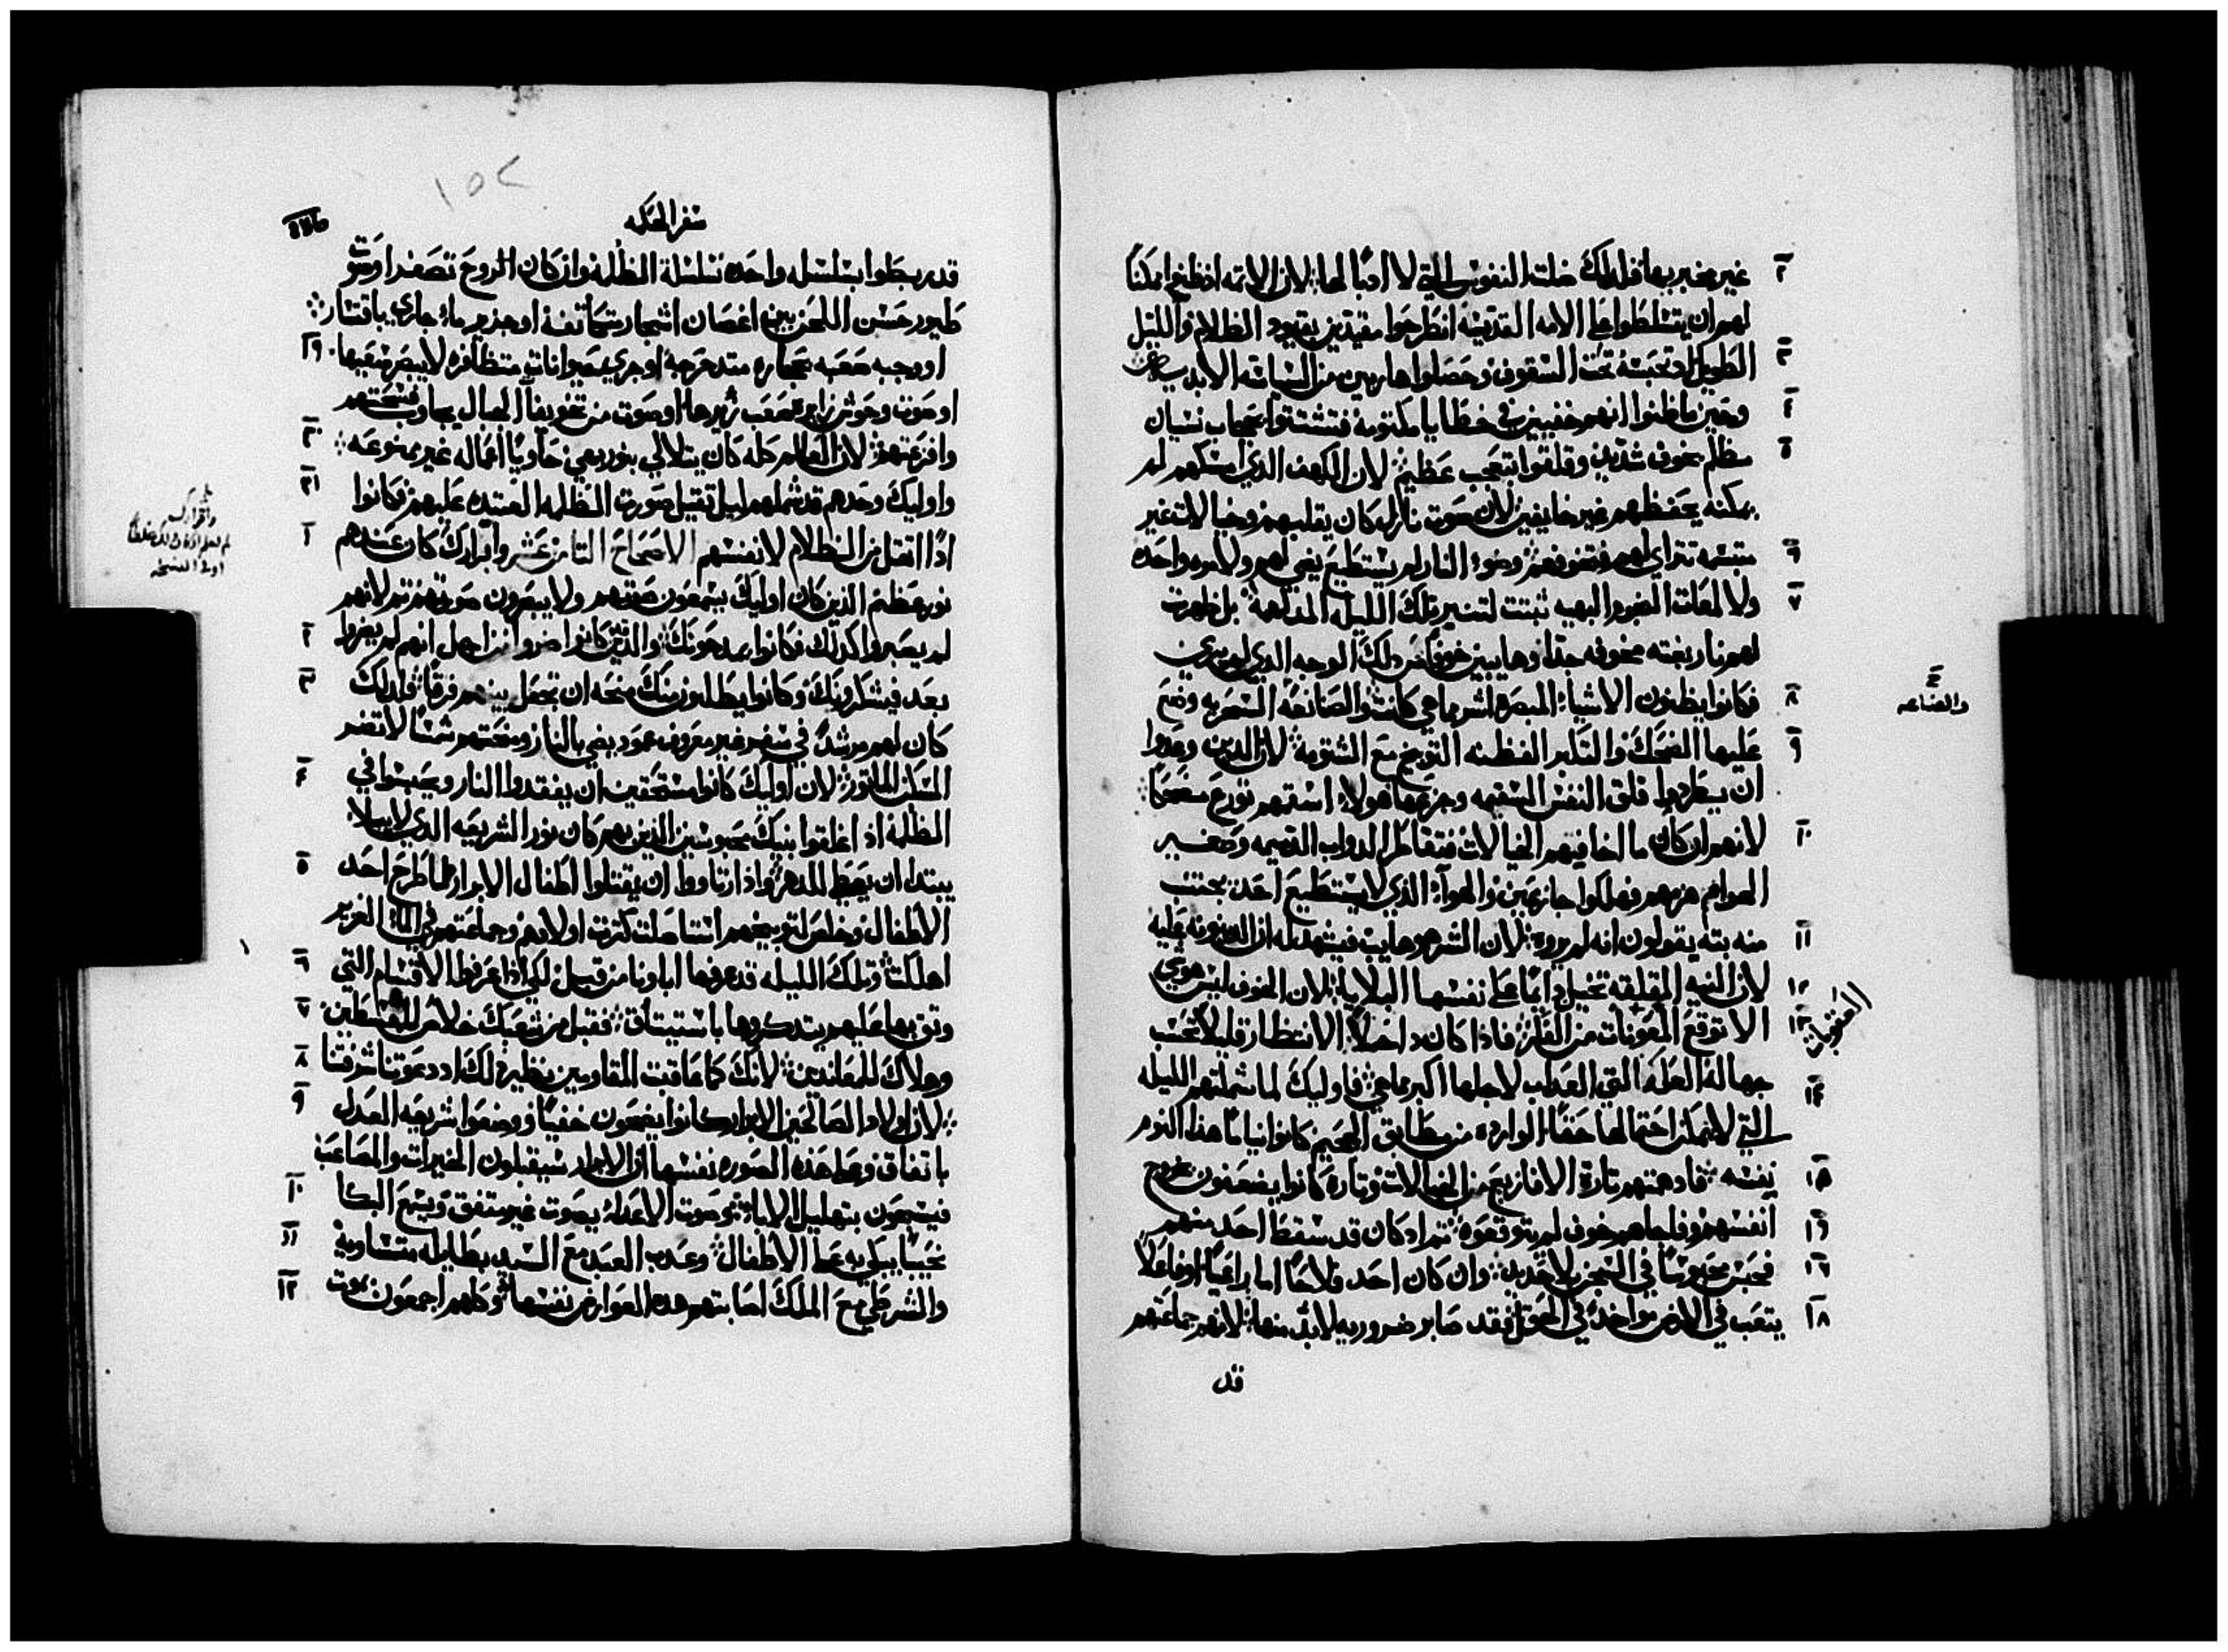 غير مخبر بها فلدلك ضلت النفوس التي لا ادبًا لها لان الاتمه اذ ظنوا ممكنًا
لهم ان يتسلطوا على الامه القديسه انطرحوا مقيدين بقيود الظلام والليل
الطويل تحت السقوف وحصلوا هاربين من السياسه الابديه
وحين ما ظنوا انهم خفيين في خطايا مكتومه فتشتتوا بحجاب نسيان
مظلم بخوف شديد وقلقوا بتعجب عظيم لان الكهف الدي امسكهم لم
يمكنه يحفظهم غير خايفين لان صوت نازل كان يقلبهم وخيالات غير
مبتسمه تتراي لهم فتخوفهم وضوء النار لم يستطيع يضي لهم ولا مره واحده
ولا لمعات النجوم البهيه تبتت لتنير تلك الليله المدلهمه بل ظهرت
لهم نار بغته مخوفه جدًا وهايبين خوفًا من دلك الوجه الدي لم يرى
فكانوا يظنون الاشياء المبصره اشر مما هي كانت والصانعه السحريه وضع
عليها الضحك والتكبر الفطنه التوبيخ مع الشتيمه لان الدين وعدوا
ان يطردوا قلق النفس السقيمه وجزعها هولاء استهم تورع مضحكًا
لانهم ان كان ما اخافهم الخيالات فتقاطر الدواب الدميمه وصفير
الهوام هزمهم فهلكوا جازعين والهوآء الذي لا يستطيع احد يجتنب
منه بته يقولون انه لم يروه لان الشر هو هايب فيشهد له ان المدينونه عليه
لان النيه المقلقه تخيل دايمًا على نفسها البلايا لان الخوف ليس هو شي
الا توقع المعونات من الفكر فاذا كان داخلًا الانتظار قليلًا تحسب
جهاله العله التي العداب لاجلها اكبر مما هي فاوليك لما شملتهم الليله
التي لا يمكن احتمالها حقًا الوارده من مطابق الجحيم كانوا نيامًا هذا النوم
نفسه فادهمتهم تارة الافازيع من الخيالات وتارة كانوا يضعفون بخروج
انفسهم وفاجاهم خوف لم يتوقعوه ثم اد كان قد سقط احد منهم
فحبس محبوسًا في السجن بلا حديد وان كان احد فلاحًا اما راعيًا او فاعلًا
يتعب في الارض مواخدًا في الحقل فقد صابر ضروريه لا بد منها لانهم جماعتهم
قد
والصناعه
سفر الحكمه
١٥٢
قد ربطوا بسلسله واحده سلسلة الظلمه وان كان الروح تصفر او صوت
طيور حسن اللحن بين اغصان اشجار متكاتفه او هزيم ماء جاري باقتسار
او وجبه صعبه بحجاره متدحرجه او جري حيوانات متظافره لا يبصر صعبها
او صوت وحوش زايره صعب زئيرها او صوت من تجويف الجبال يجاوب فتسختهم
وافزعتهم لان العالم كله كان يتلالي بنور بهي حاويًا اعماله غير ممنوعه
واوليك وحدهم قد شملهم ليل تقيل صورت الظلمه العتيده عليهم فكانوا
ادًا اتقل من الظلام لانفسهم الاصحاح التامن عشر وابرارك كان عندهم
نور عظيم الذين كان اوليك يسمعون صوتهم ولا يبصرون صورتهم ثم لانهم
لم يصبروا كذلك فكانوا يمدحونك والذين كانوا اضروا من اجل انهم لم يضروا
بعد فيشكرونك وكانوا يطلبون منك منحه ان تجعل بينهم فرقًا فلدلك
كان لهم مرشدًا في سفر غير معروف عمود يضي بالنار ومنحتهم شمسًا لا تضر
المسكن الماتور لان اوليك كانوا مستحقين ان يفقدوا النار ويحبسوا في
الظلمه اذ اغلقوا بنيك محبوسين الذين بهم كان نور الشريعه الدي لا يبلا
يبتدا ان يعطى للدهر واذ ارتاووا ان يقتلوا اطفال الابرار لما طرح احد
الاطفال وخلص لتوبيخهم استاصلت كثرت اولادهم وجماعتهم في الماء الغزير
اهلكت وتلك الليله قد عرفها اباونا من قبل لكي اذا عرفوا الاقسام التي
وتق بها عليهم يتدكروها باستيثاق فقبل من شعبك خلاص للمقسطين
وهلاك للمعاندين لانك كما عاقبت المقاومين نظير ذلك اد دعوتنا شرفتنا
لان اولاد الصالحين الابرار كانوا يضحون خفيًا ووضعوا شريعه العدل
باتفاق وعلى هذه الصوره نفسها ان الابرار سيقبلون الخيرات والمصاعب
فيسبحون بتهليل الاباء نحو صوت الاعداء بصوت غير متفق ويسمع البكا
نحيبًا يبكي به على الاطفال وعدب العبد مع السيد بطايله متساويه
والشرطي مع الملك اصابتهم هده العوارض نفسها وكلهم اجمعون بموت